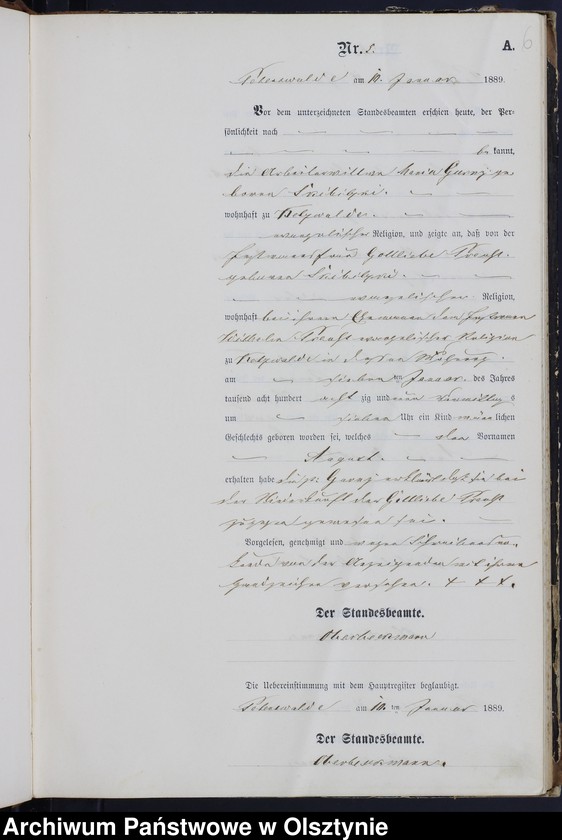 Nr. 5.
A.
6
am 10. Januar 1889.
Vor dem unterzeichneten Standesbeamten erschien heute, der Per-
sönlichkeit nach
be kannt,
die Arbeiterwittwe Maria ge
borene Skibitzki.
wohnhaft zu
evangelischer Religion, und zeigte an, daß von der
Gottliebe
geborenen Skibitzki.
evangelischer Religion,
wohnhaft bei ihrem Ehemann dem
Wilhelm evangelischer Religion
zu in dessen Wohnung.
am sieben ten Januar des Jahres
tausend acht hundert acht zig und neun Vormittags
um sieben Uhr ein Kind männ lichen
Geschlechts geboren worden sei, welches den Vornamen
August.
erhalten habe die erklärt daß sie bei
der Niederkunft der Gottliebe
zugegen gewesen sei.
Vorgelesen, genehmigt und wegen Schreibensun-
kunde von der Anzeigenden mit ihrem
Handzeichen versehen. + + +.
Der Standesbeamte.
Oberbeckmann
Die Uebereinstimmung mit dem Hauptregister beglaubigt.
am 10. ten Januar 1889.
Der Standesbeamte.
Oberbeckmann.
Archiwum Państwowe w Olsztynie